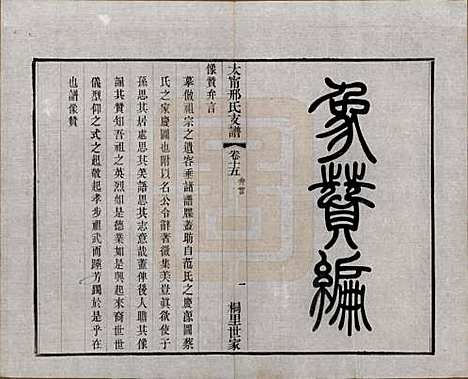 象贊編
太甯邢氏支譜 卷十五 弁言 一 桐里世家
像贊弁言
摹像祖宗之遺容垂諸譜牒蓋助自范氏之慶源圖蔡
氏之家慶圖也附以名公令辭著徵集美豈眞欲後子
孫思其居處思其笑語思其志意哉蓋俾後人瞻其
誦其贊知吾祖之英烈如是德業如是興起來裔世世
儀型仰之式之趄敬起孝步祖武而踵芳躅於是乎在
也譜像贊